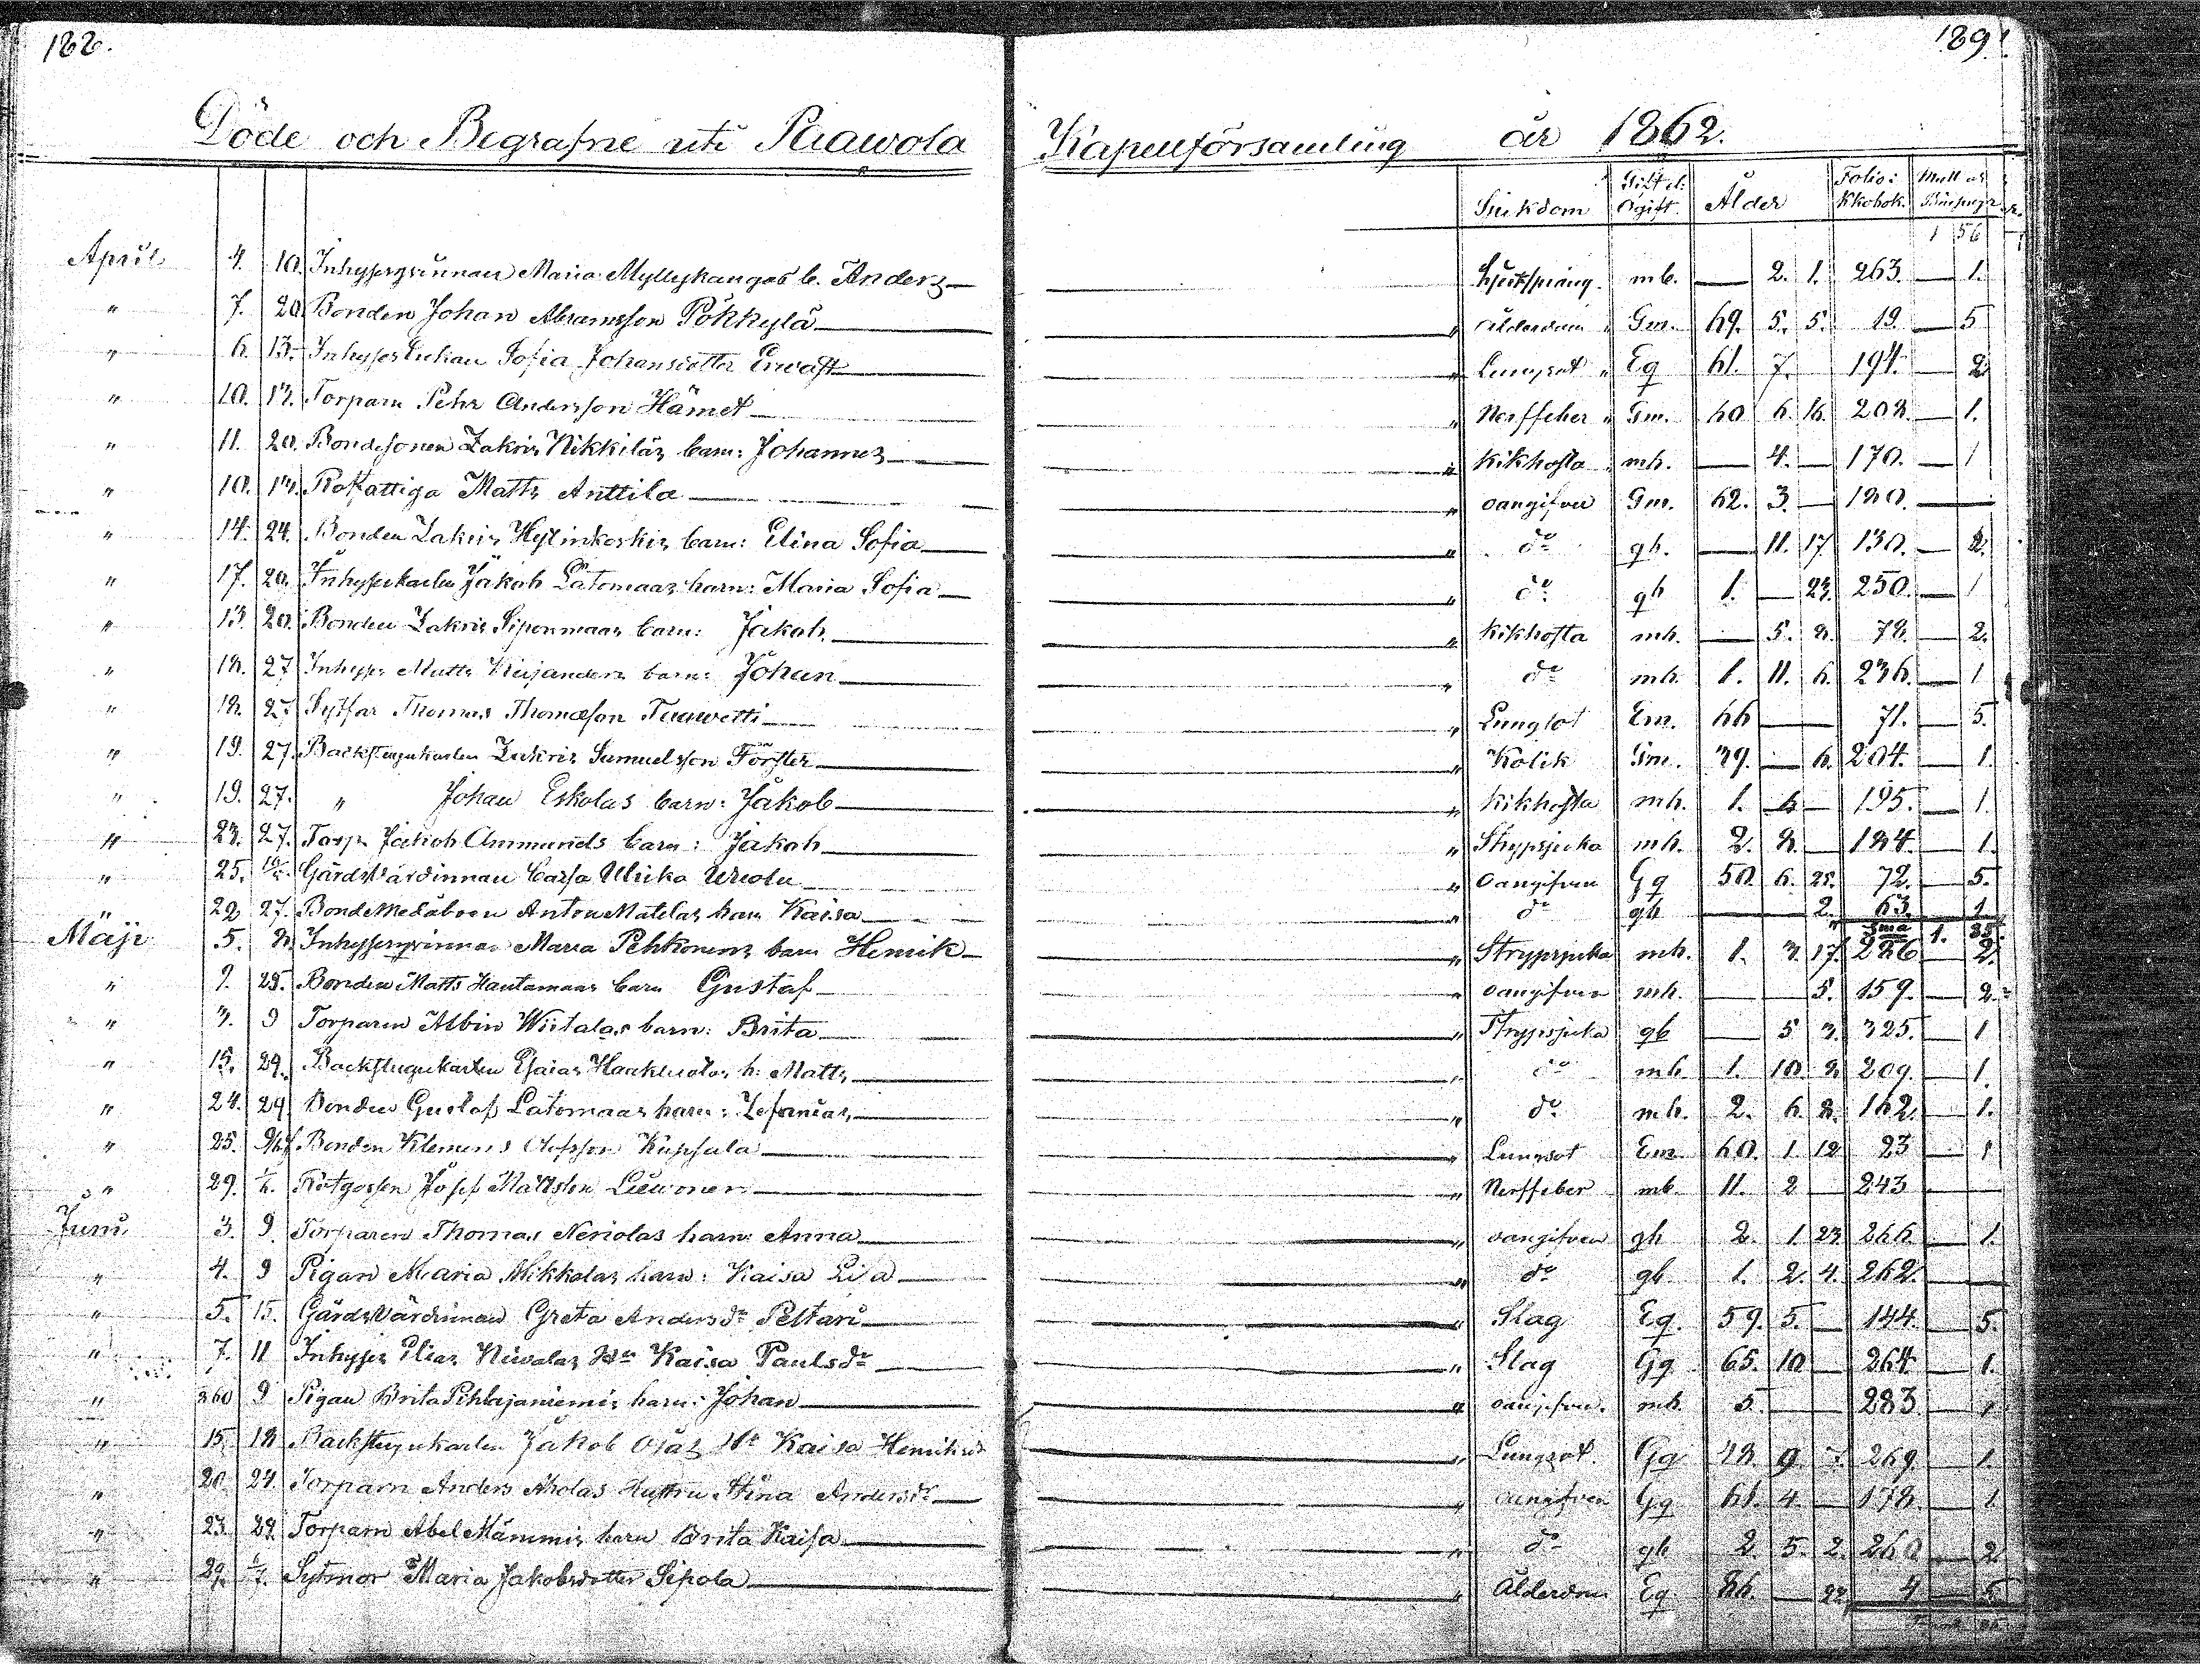 188.
189.
Döde och Begrafne uti Paawola Kapellförsamling år 1862.
Sjukdom Gift el: Ogift. Ålder Folio i Kkobok.
1 56
April 4. 10. Inhysesqvinnan Maria Myllykangas b. Anders — mb. — 2. 1. 263. — 1.
" 7. 20. Bonden Johan Abramsson Pökkylä — " Ålderdom Gm. 69. 5. 5. 19. — 5
" 6. 13. Inhyses Enkan Sofia Johansdotter Erwast — " Lungsot Eq 61. 7. 194. — 2
" 10. 13. Torparn Pehr Andersson Hämet — " Nerffeber Gm. 60 6. 16. 208. — 1.
" 11. 20. Bondesonen Zakris Nikkiläs barn: Johannes — " Kikhosta mb. — 4. — 170. — 1
" 10. 13. Rotfattiga Matts Anttila — " oangifven Gm. 62. 3. — 180. —
" 14. 24. Bonden Zakris Hylinkoskis barn: Elina Sofia — " do gb. — 11. 17 130. — 2.
" 17. 20. Inhyseskarlen Jakob Latomaas barn: Maria Sofia — " do gb 1. — 23. 250. — 1
" 13. 20. Bonden Zakris Siponmaas barn: Jakob — " Kikhosta mb. — 5. 8. 78. — 2.
" 18. 27 Inhyses Matts Kujanders barn: Johan — " do mb. 1. 11. 6. 236. — 1
" 18. 27 Sytfar Thomas Thomasson Tuuwetti — " Lungsot Em. 66 — 71. — 5.
" 19. 27. Backstugukarlen Zakris Samuelsson Förster — " Kolik Gm. 39. — 6. 204. — 1.
" 19. 27. " Johan Eskolas barn: Jakob — " Kikhosta mb. 1. 6 — 195. — 1.
" 23. 27. Torp. Jakob Ammunds barn: Jakob — " Strypsjuka mb. 2. 8. — 184. — 1.
" 25. Gårdsvärdinnan Caisa Ulrika Uleola — " Oangifven Gq 50. 6. 25. 72. — 5.
" 22 27. Bondemedåboen Anton Matelas barn Kaisa — " do gb — 2. 63. — 1
Sma 1. 35.
Maji 5. 8. Inhysesqvinnan Maria Pehkonens barn Henrik — " Strypsjuka mb. 1. 3. 17. 286 — 2.
" 9. 25. Bonden Matts Hautamaas barn Gustaf — " oangifven mb. — 5. 159. — 2.
" 3. 9 Torparen Albin Wiitalas barn: Brita — " Strypsjuka gb — 5 3. 325. — 1
" 15. 29. Backstugukarlen Esaias Haakuolas b: Matts — " do mb 1. 10. 8. 209. — 1.
" 24. 29. Bonden Gustaf Latomaas barn: Zefanias — " do mb. 2. 6. 8. 162. — 1.
" 25. Bonden Klemens Olofsson Kuppsala — " Lungsot Em. 60. 1. 12 23 — 1
" 29. Rotgossen Josef Mattsson Liewonen — " Nerffeber mb. 11. 2 — 243 —
Juni 3. 9. Torparen Thomas Neriolas barn Anna — " oangifven gb 2. 1. 23. 266. — 1.
" 4. 9 Pigan Maria Mikkolas barn: Kaisa Lisa — " do gb. 1. 2. 4. 262. —
" 5. 15. Gårdsvärdinnan Greta Andersdr Peltari — " Slag Eq. 59. 5. — 144. — 5.
" 7. 11 Inhyses Elias Niwalas Hu Kaisa Paulsdr — " Slag Gq 65. 10 — 264. — 1.
" 9 Pigan Brita Pihlajaniemis barn: Johan — " oangifven. mb. 5. — 283 — 1
" 15. 18 Backstugukarlen Jakob Ojas Hu Kaisa Henriksdr " Lungsot. Gq 48. 9 7. 269. — 1.
" 20. 24. Torparn Anders Aholas Hustru Stina Andersdr — " oangifven Gq 61. 4. — 178. — 1.
" 23. 29. Torparn Abel Mämmis barn Brita Kaisa — " do gb 2. 5. 2. 260 — 2
" 29. Sytmor Maria Jakobsdotter Sipola — " Ålderdom Eq. 86. — 22. 4 — 5